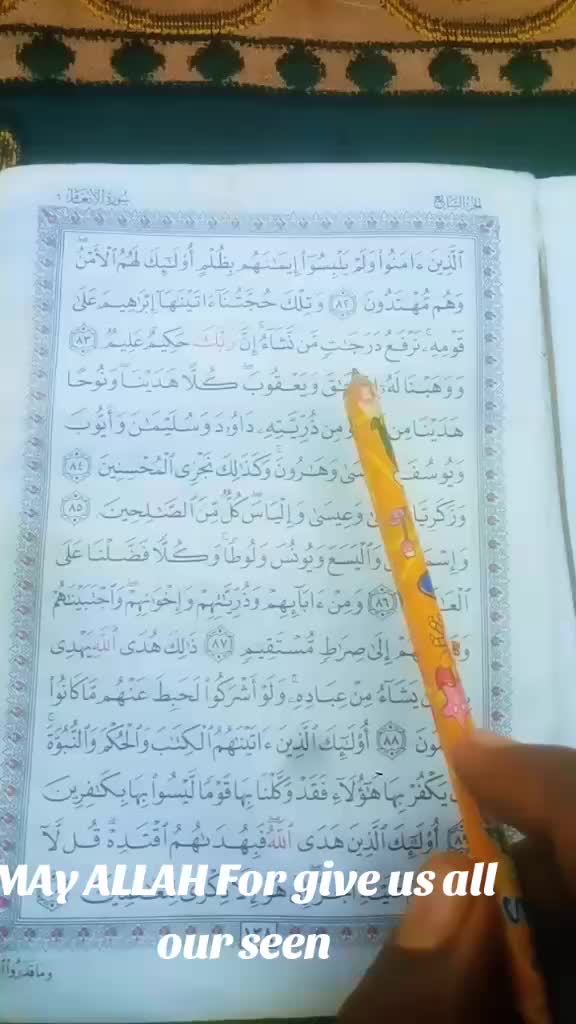 سورة الأنعام ٦
الجزء السابع
الَّذِينَ ءَامَنُوا وَلَمْ يَلْبِسُوا إِيمَٰنَهُم بِظُلْمٍ أُولَٰئِكَ لَهُمُ الْأَمْنُ
وَهُم مُّهْتَدُونَ ٨٢ وَتِلْكَ حُجَّتُنَا ءَاتَيْنَٰهَا إِبْرَٰهِيمَ عَلَىٰ
قَوْمِهِ نَرْفَعُ دَرَجَٰتٍ مَّن نَّشَاءُ إِنَّ رَبَّكَ حَكِيمٌ عَلِيمٌ ٨٣
وَوَهَبْنَا لَهُ وَيَعْقُوبَ كُلًّا هَدَيْنَا وَنُوحًا
هَدَيْنَا مِن وَمِن ذُرِّيَّتِهِ دَاوُدَ وَسُلَيْمَٰنَ وَأَيُّوبَ
وَيُوسُفَ وَهَٰرُونَ وَكَذَٰلِكَ نَجْزِي الْمُحْسِنِينَ ٨٤
وَزَكَرِيَّا وَعِيسَىٰ وَإِلْيَاسَ كُلٌّ مِّنَ الصَّٰلِحِينَ ٨٥
وَالْيَسَعَ وَيُونُسَ وَلُوطًا وَكُلًّا فَضَّلْنَا عَلَى
٨٦ وَمِنْ ءَابَائِهِمْ وَذُرِّيَّٰتِهِمْ وَإِخْوَٰنِهِمْ وَاجْتَبَيْنَٰهُمْ
إِلَىٰ صِرَٰطٍ مُّسْتَقِيمٍ ٨٧ ذَٰلِكَ هُدَى اللَّهِ يَهْدِي
يَشَاءُ مِنْ عِبَادِهِ وَلَوْ أَشْرَكُوا لَحَبِطَ عَنْهُم مَّا كَانُوا
٨٨ أُولَٰئِكَ الَّذِينَ ءَاتَيْنَٰهُمُ الْكِتَٰبَ وَالْحُكْمَ وَالنُّبُوَّةَ
يَكْفُرْ بِهَا هَٰؤُلَاءِ فَقَدْ وَكَّلْنَا بِهَا قَوْمًا لَّيْسُوا بِهَا بِكَٰفِرِينَ
٨٩ أُولَٰئِكَ الَّذِينَ هَدَى اللَّهُ فَبِهُدَىٰهُمُ اقْتَدِهْ قُل لَّا
MAy ALLAH For give us all
our seen
١٣٨
وما قدروا الله